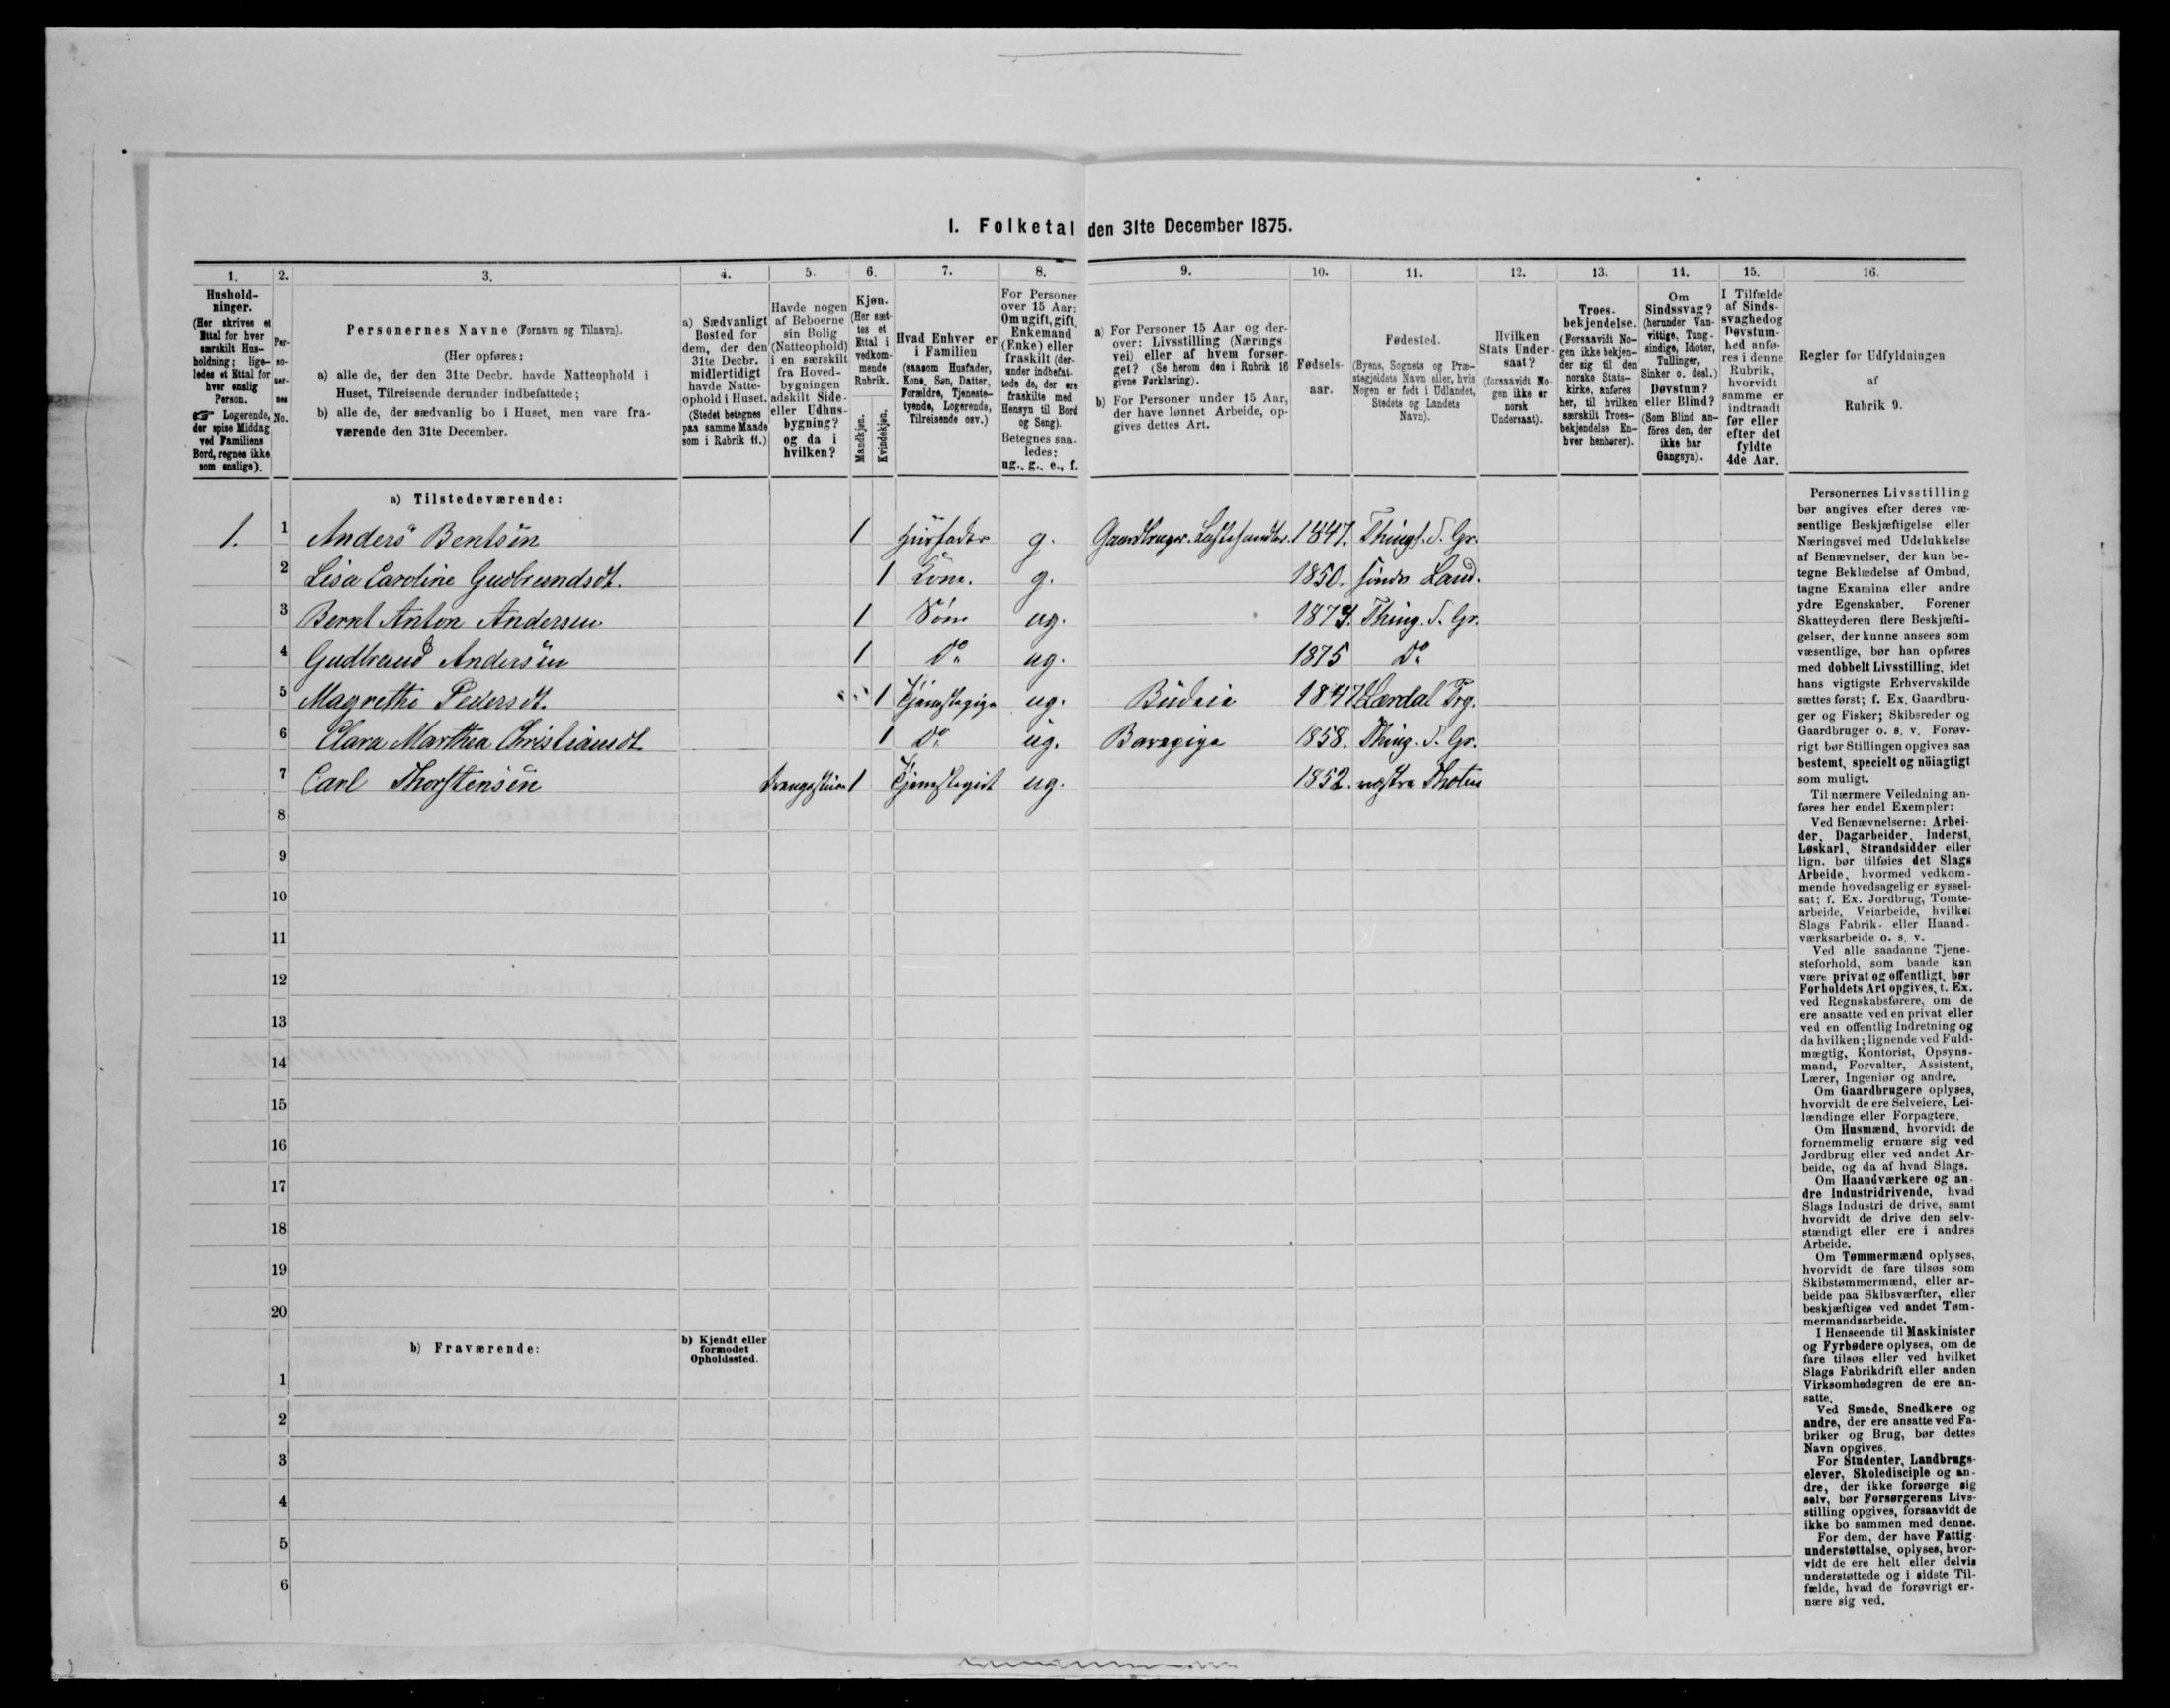 I. Folketal den 31te December 1875.
1.
2.
3.
4.
5.
6.
7.
8.
9.
10.
11.
12.
13.
14.
15.
16.
Hushold-
ninger.
(Her skrives et
Ettal for hver
særskilt Hus-
holdning; lige-
ledes et Ettal for
hver enslig
Person.
☞ Logerende,
der spise Middag
ved Familiens
Bord, regnes ikke
som enslige).
Per-
so-
ner-
nes
No.
Personernes Navne (Fornavn og Tilnavn).
(Her opføres:
a) alle de, der den 31te Decbr. havde Natteophold i
Huset, Tilreisende derunder indbefattede;
b) alle de, der sædvanlig bo i Huset, men vare fra-
værende den 31te December.
a) Sædvanligt
Bosted for
dem, der den
31te Decbr.
midlertidigt
havde Natte-
ophold i Huset.
(Stedet betegnes
paa samme Maade
som i Rubrik 11.)
Havde nogen
af Beboerne
sin Bolig
(Natteophold)
i en særskilt
fra Hoved-
bygningen
adskilt Side-
eller Udhus-
bygning?
og da i
hvilken?
Kjøn.
(Her sæt-
tes et
Ettal i
vedkom-
mende
Rubrik.
Mandkjøn.
Kvindekjøn.
Hvad Enhver er
i Familien
(saasom Husfader,
Kone, Søn, Datter,
Forældre, Tjeneste-
tyende, Logerende,
Tilreisende osv.)
For Personer
over 15 Aar:
Om ugift, gift,
Enkemand
(Enke) eller
fraskilt (der-
under indbefat-
tede de, der ere
fraskilte med
Hensyn til Bord
og Seng).
Betegnes saa-
ledes:
ug., g., e., f.
a) For Personer 15 Aar og der-
over: Livsstilling (Nærings
vei) eller af hvem forsør-
get? (Se herom den i Rubrik 16
givne Forklaring).
b) For Personer under 15 Aar,
der have lønnet Arbeide, op-
gives dettes Art.
Fødsels-
aar.
Fødested.
(Byens, Sognets og Præ-
stegjeldets Navn eller, hvis
Nogen er født i Udlandet,
Stedets og Landets
Navn).
Hvilken
Stats Under-
saat?
(forsaavidt No-
gen ikke er
norsk
Undersaat).
Troes-
bekjendelse.
(Forsaavidt No-
gen ikke bekjen-
der sig til den
norske Stats-
kirke, anføres
her, til hvilken
særskilt Troes-
bekjendelse En-
hver henhører).
Om
Sindssvag?
(herunder Van-
vittige, Tung-
sindige, Idioter,
Tullinger,
Sinker o. desl.)
Døvstum?
eller Blind?
(Som Blind an-
føres den, der
ikke har
Gangsyn).
I Tilfælde
af Sinds-
svaghed og
Døvstum-
hed anfø-
res i denne
Rubrik,
hvorvidt
samme er
indtraadt
før eller
efter det
fyldte
4de Aar.
Regler for Udfyldningen
af
Rubrik 9.
a) Tilstedeværende:
1. 1 Anders Bentsen 1 Husfader g. Gaardbruger. 1847. Things. S. Gr.
2 Lisa Caroline Gudbrandsdt. 1 Kone. g. 1850. søndr Land.
3 Bernt Anton Andersen 1 Søn ug. 1874. Thing. S. Gr.
4 Gudbrand Andersen 1 Do ug. 1875 Do
5 Magrethe Pedersdt. 1 Tjenestepige ug. Budeie 1847 Lærdal Prg.
6 Clara Marthea Christiansdt. 1 Do ug. Barnepige 1858. Thing. S. Gr.
7 Carl Thorstensen Drengestuen 1 Tjenestegut ug. 1852. vestre Thoten
8
9
10
11
12
13
14
15
16
17
18
19
20
b) Fraværende:
b) Kjendt eller
formodet
Opholdssted.
1
2
3
4
5
6
Personernes Livsstilling
bør angives efter deres væ-
sentlige Beskjæftigelse eller
Næringsvei med Udelukkelse
af Benævnelser, der kun be-
tegne Beklædelse af Ombud,
tagne Examina eller andre
ydre Egenskaber. Forener
Skatteyderen flere Beskjæfti-
gelser, der kunne ansees som
væsentlige, bør han opføres
med dobbelt Livsstilling, idet
hans vigtigste Erhvervskilde
sættes først; f. Ex. Gaardbru-
ger og Fisker; Skibsreder og
Gaardbruger o. s. v. Forøv-
rigt bør Stillingen opgives saa
bestemt, specielt og nöiagtigt
som muligt.
Til nærmere Veiledning an-
føres her endel Exempler:
Ved Benævnelserne: Arbei-
der, Dagarbeider, Inderst,
Løskarl, Strandsidder eller
lign. bør tilføies det Slags
Arbeide, hvormed vedkom-
mende hovedsagelig er syssel-
sat; f. Ex. Jordbrug, Tomte-
arbeide, Veiarbeide, hvilket
Slags Fabrik- eller Haand-
værksarbeide o. s. v.
Ved alle saadanne Tjene-
steforhold, som baade kan
være privat og offentligt, bør
Forholdets Art opgives, t. Ex.
ved Regnskabsførere, om de
ere ansatte ved en privat eller
ved en offentlig Indretning og
da hvilken; lignende ved Fuld-
mægtig, Kontorist, Opsyns-
mand, Forvalter, Assistent,
Lærer, Ingeniør og andre.
Om Gaardbrugere oplyses,
hvorvidt de ere Selveiere, Lei-
lændinge eller Forpagtere.
Om Husmænd, hvorvidt de
fornemmelig ernære sig ved
Jordbrug eller ved andet Ar-
beide, og da af hvad Slags.
Om Haandværkere og an-
dre Industridrivende, hvad
Slags Industri de drive, samt
hvorvidt de drive den selv-
stændigt eller ere i andres
Arbeide.
Om Tømmermænd oplyses,
hvorvidt de fare tilsøs som
Skibstømmermænd, eller ar-
beide paa Skibsværfter, eller
beskjæftiges ved andet Tøm-
mermandsarbeide.
I Henseende til Maskinister
og Fyrbødere oplyses, om de
fare tilsøs eller ved hvilket
Slags Fabrikdrift eller anden
Virksomhedsgren de ere an-
satte.
Ved Smede, Snedkere og
andre, der ere ansatte ved Fa-
briker og Brug, bør dettes
Navn opgives.
For Studenter, Landbrugs-
elever, Skoledisciple og an-
dre, der ikke forsørge sig
selv, bør Forsørgerens Livs-
stilling opgives, forsaavidt de
ikke bo sammen med denne.
For dem, der have Fattig-
understøttelse, oplyses, hvor-
vidt de ere helt eller delvis
understøttede og i sidste Til-
fælde, hvad de forøvrigt er-
nære sig ved.